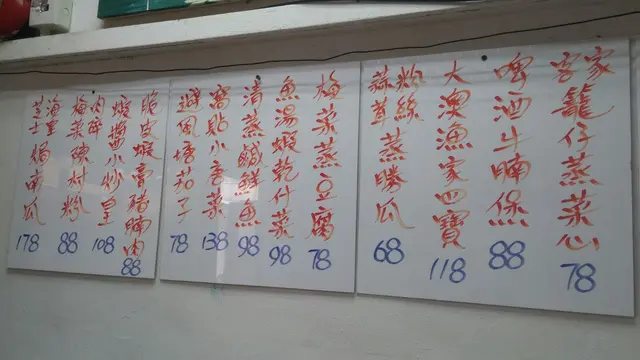 客家籠仔蒸菜心
78
啤酒牛腩煲
88
大澳漁家四寶
118
蒜茸粉絲蒸勝瓜
68
梅菜蒸豆腐
78
魚湯蝦乾什菜
98
清蒸鹹鮮魚
98
窩貼小唐菜
138
避風塘茄子
78
脆皮蝦膏豬腩肉
88
蝦醬小炒皇
108
肉碎梅菜陳村粉
88
海皇芝士焗南瓜
178